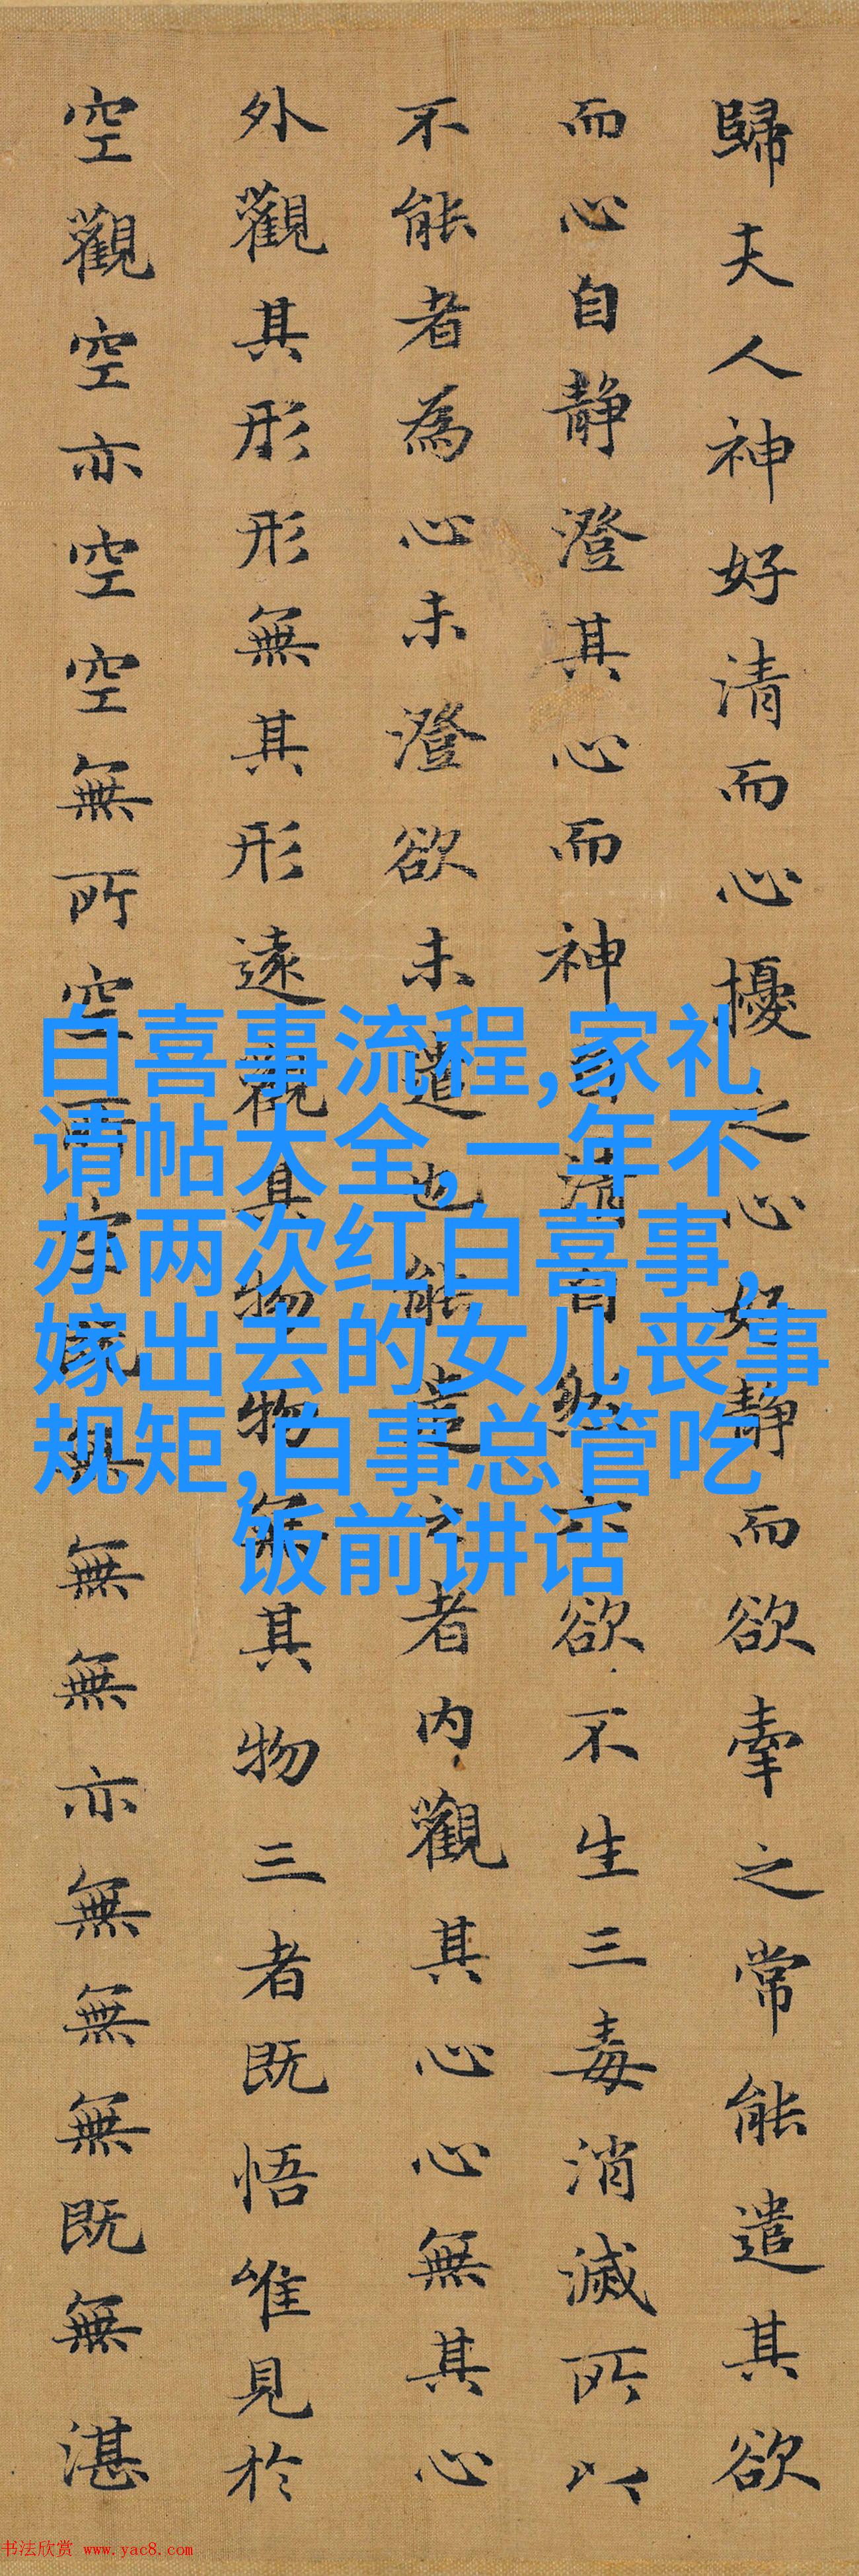 歸夫人神好清而心擾之心好静而欲牽之常能遣其欲
而心自静澄其心而神自清自然六欲不生三毒消滅所以
不能者為心未澄欲未遣也能遣之者内觀其心心無其心
外觀其形形無其形遠觀其物物無其物三者既悟唯見於
空觀空亦空空無所空所空既無無無亦無無無既無湛
白喜事流程,家礼
请帖大全,一年不
办两次红白喜事,
嫁出去的女儿丧事
规矩,白事总管吃
饭前讲话
书法欣赏 www.yac8.com